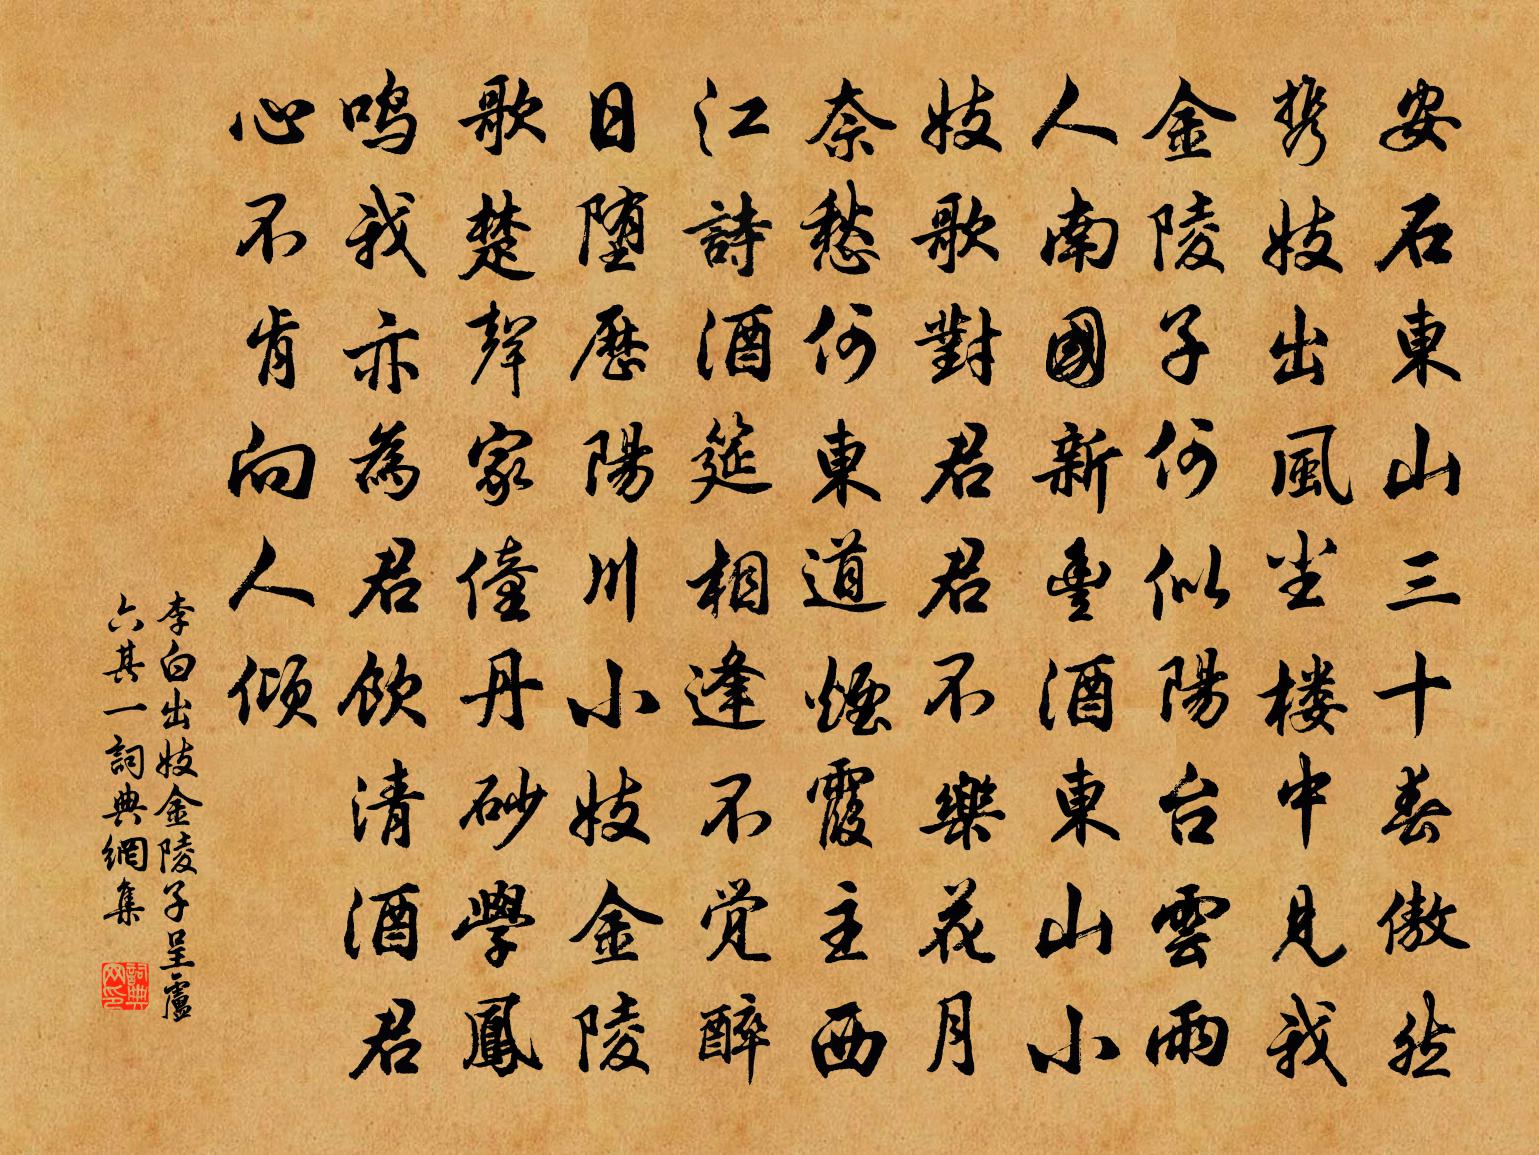 安石東山三十春傲然
携妓出風尘楼中見我
金陵子何似陽台雲雨
人南國新豊酒東山小
妓歌對君君不樂花月
奈愁何東道煙霞主西
江詩酒筵相逢不觉醉
日堕歷陽川小妓金陵
歌楚聲家僮丹砂學鳳
鸣我亦為君飲清酒君
心不肯向人傾
李白出妓金陵子呈盧
六其一詞典網集
詞典网印